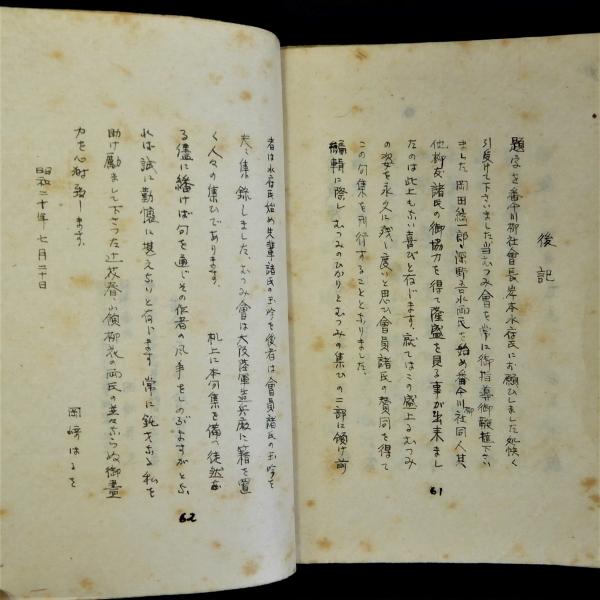 後記
題字を番傘川柳社會長岸本水府氏にお願ひしました処快く
引受けて下さいました当むつみ會を常に御指導御鞭撻下さい
ました岡田結一郎、深野吾水両氏を始め番傘川柳社同人其
他柳友諸氏の御協力を得て隆盛を見る事が出来まし
たのは此上もない喜びと存じます、就てはこの盛上るむつみ
の姿を永久に残し度いと思ひ會員諸氏の賛同を得て
この句集を刊行することとなりました。
編輯に際し、むつみのひかりとむつみの集ひの二部に傾け前
61
者は水府氏始め先輩諸氏の玉吟を後者は會員諸氏の玉吟を
夫々集録しました、むつみ會は大阪陸軍造兵廠に籍を置
く人々の集ひであります。
机上に本句集を備へ徒然なる
る儘に繙けば句を通じその作者の風事をしのぶよすがともな
れば誠に勤懼に堪えないと存じます 常に鈍才なる私を
助け勵まして下さつた辻枝春 傾柳衣の両氏の並々ならぬ御盡
力を心謝致します。
昭和二十年七月二十日
岡崎はるを
62